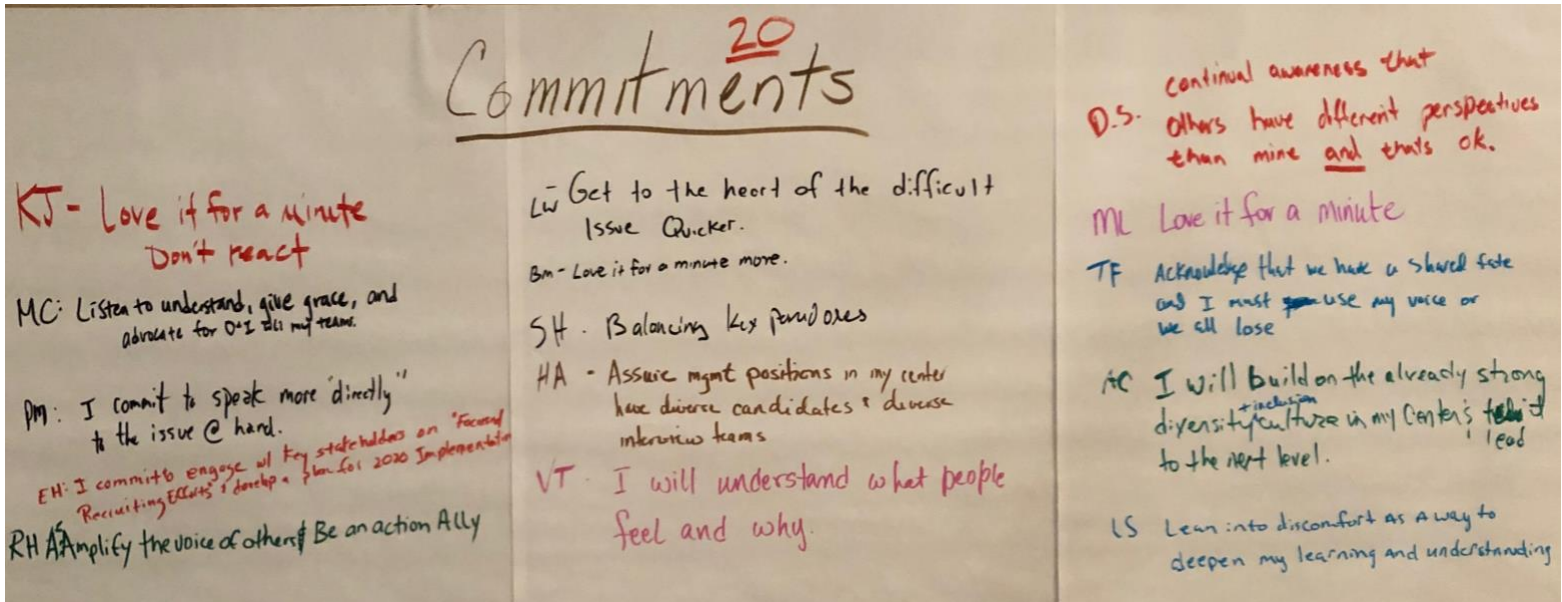 20
Commitments
KJ - Love it for a minute
Don't react
MC: Listen to understand, give grace, and
advocate for D+I my teams.
DM: I commit to speak more "directly"
to the issue @ hand.
EH: I commit to engage w/ Key stakeholders on "Focused
Recruiting Efforts" & develop a plan for 2020 Implementation
RH Amplify the voice of others & Be an action Ally
LW - Get to the heart of the difficult
Issue Quicker.
BM - Love it for a minute more.
SH - Balancing key paradoxes
HA - Assure mgmt positions in my center
have diverse candidates & diverse
interview teams
VT - I will understand what people
feel and why.
D.S. continual awareness that
others have different perspectives
than mine and thats ok.
ML Love it for a minute
TF Acknowledge that we have a shared fate
and I must use my voice or
we all lose
AC I will build on the already strong
diversity + inclusion culture in my Center's
lead
to the next level.
LS Lean into discomfort as a way to
deepen my learning and understanding